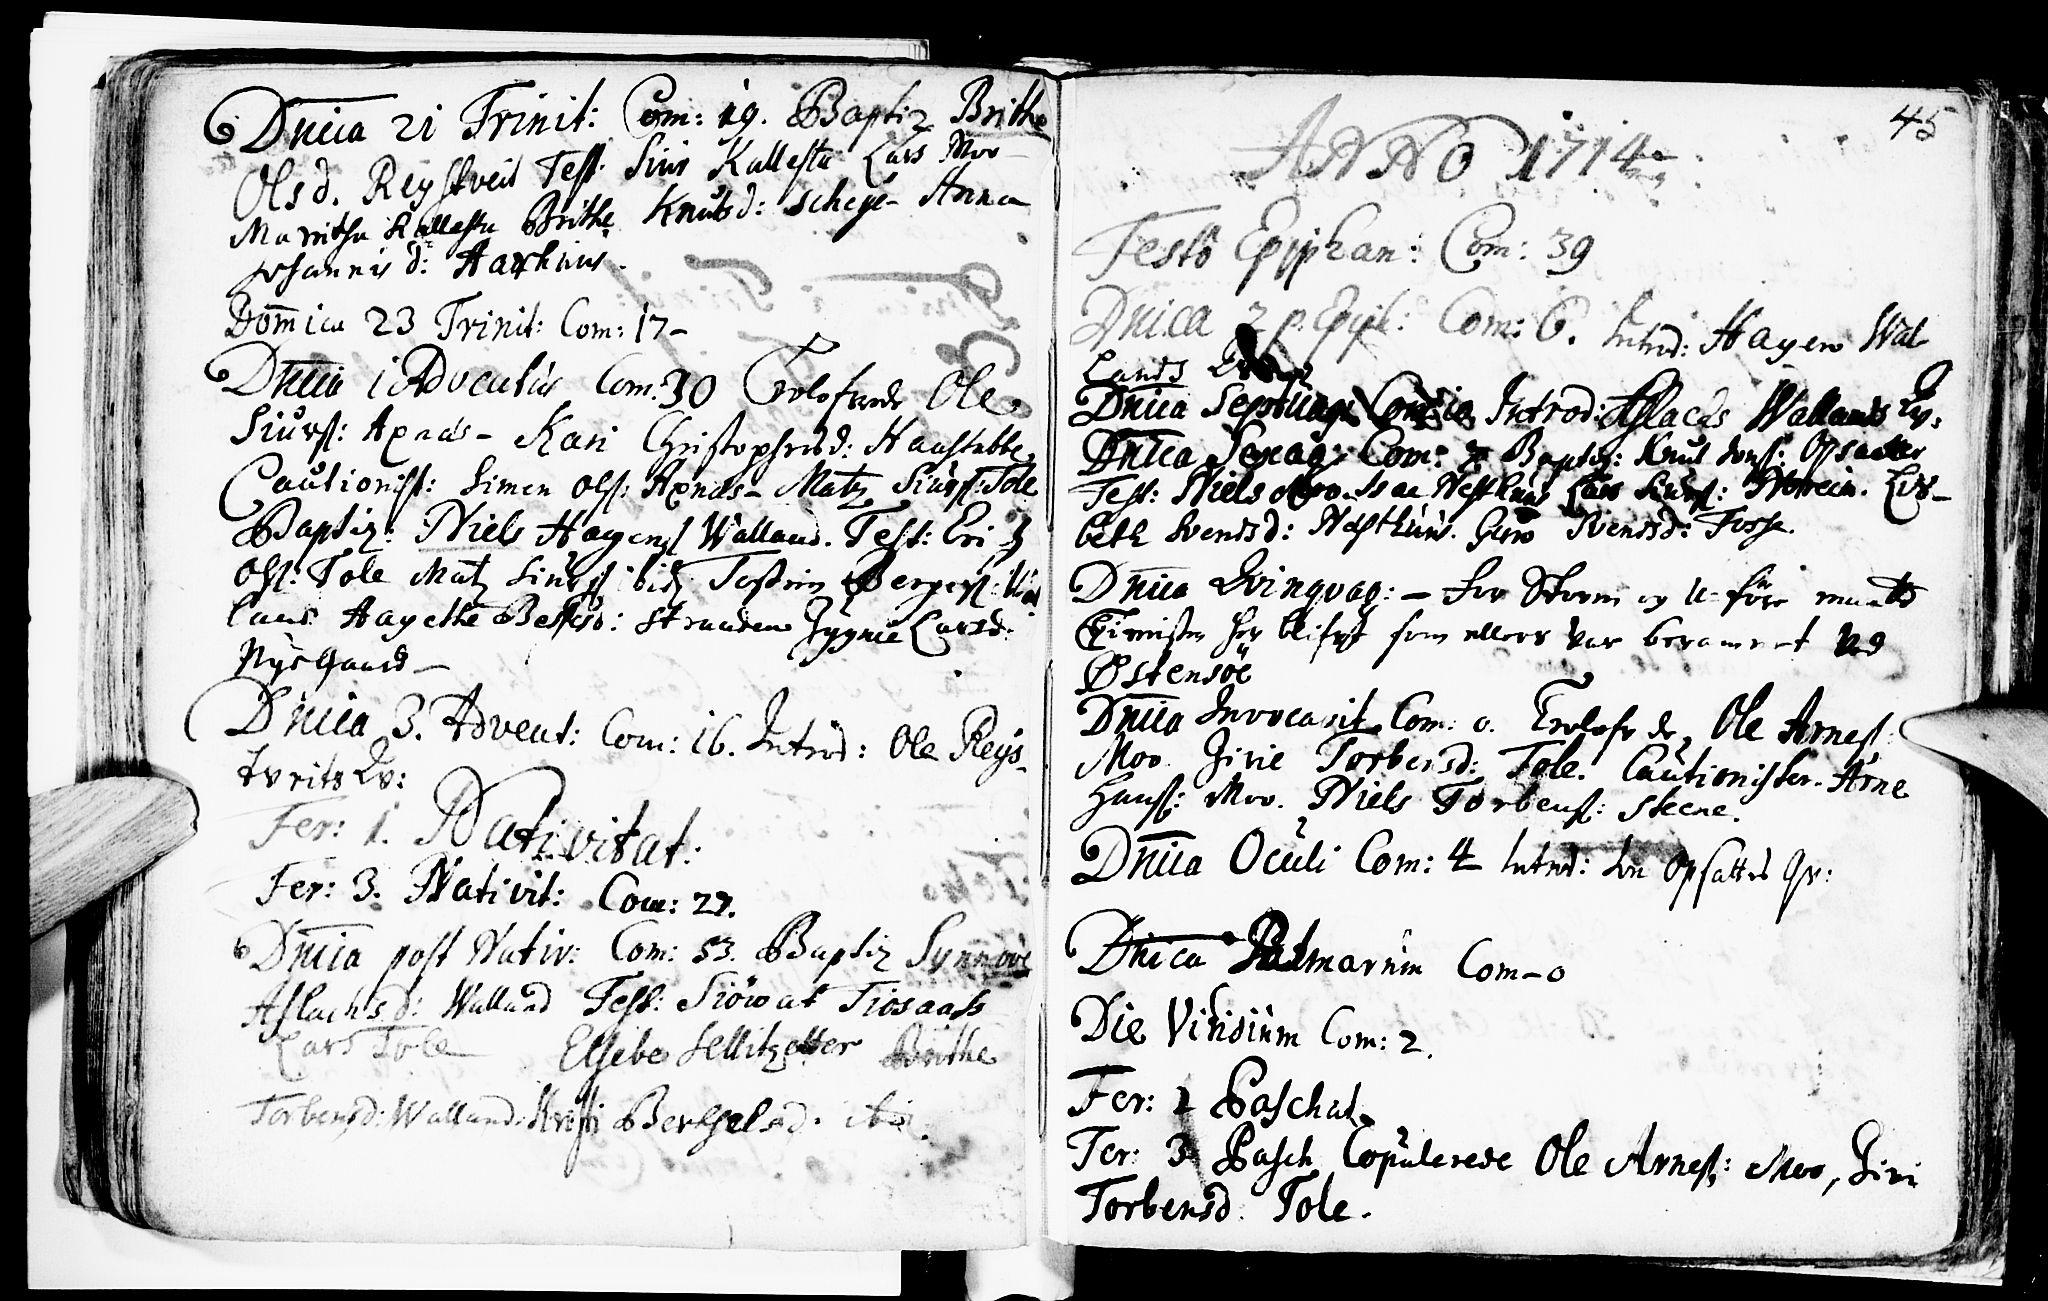 Dnica 21 Trinit: Com: 19. Baptiz Brithe
Ols d. Reystveit Test: Siur Kallestu Lars Moo
Maritha Kallestu Brithe Knuts d: Scheye Anna
Johannis d:
Domica 23 Trinit: Com: 17-
Dnica 1 Adventus Com. 30 Trolofvede Ole
Siurs: Axnæs- Kari Christophersd: Haastabbe
Cautionist: Simen Ols: Axnæs- Matz Siurs: Tole
Baptiz: Niels Hagens Walland. Test: Erich
Ols: Tole Matz Siurs ibid Tosten Bergers: Wal
land Hagethe stranden Jygnie Larsd:
Nysgaard-
Dnica 3. Advent: Com: 16. Introd: Ole Reys-
tveits Qv:
Fer: 1. Nativitat:
Fer: 3. Nativit: Com: 27.
Dnica post Nativ: Com: 53. Baptiz Synnøve
Aslachs d: Walland Test: Siowat Tiosaas
Lars Tole Elsebe Sellitzetter Brithe
Torbensd: Walland. Kristi Berthels d. ibid.
45
ANNO 1714
Festo Epiphan: Com: 39
Dnica 2 p. Epiph: Com: 6. Introd: Hagen Wal-
lands
Dnica Septuag: Introd: Aslacks Wallands Qv:
Dnica Sexag: Com: Baptiz: Knut Opsætter
Test: Niels Moo. Isac Nesthuus Lars Siurs: Norein. Lis-
beth Svendsd: Nesthuus. Guro Svendsd: Fosse.
Dnica Qvinqvag: - for Storm og U-före maatte
Tienisten her blifve som ellers var berammet ved
Østensøe
Dnica Invocavit Com: 0. Trolofvede Ole Arnes:
Moo Zirie Torbensd: Tole. Cautionister Arne
Hans: Moo. Niels Torbens: Steene.
Dnica Oculi Com: 4 Introd: Opsætters Qv:
Dnica Palmarum Com-0
Die Viridium Com: 2.
Fer: 1 Paschat
Fer: 3 Pasch Copulerede Ole Arnes: Moo, Ziri
Torbensd. Tole.